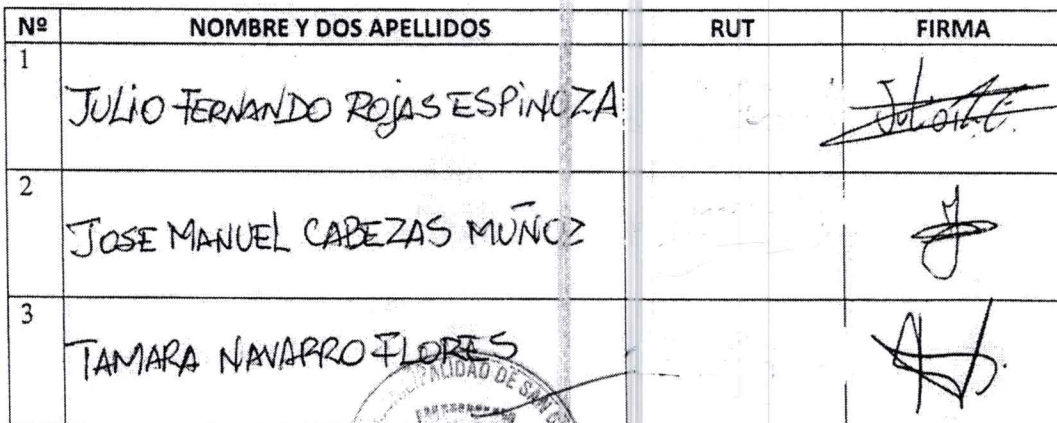 Nº NOMBRE Y DOS APELLIDOS RUT FIRMA
1 JULIO FERNANDO ROJAS ESPINOZA
2 JOSE MANUEL CABEZAS MUÑOZ
3 TAMARA NAVARRO FLORES
DE SAN